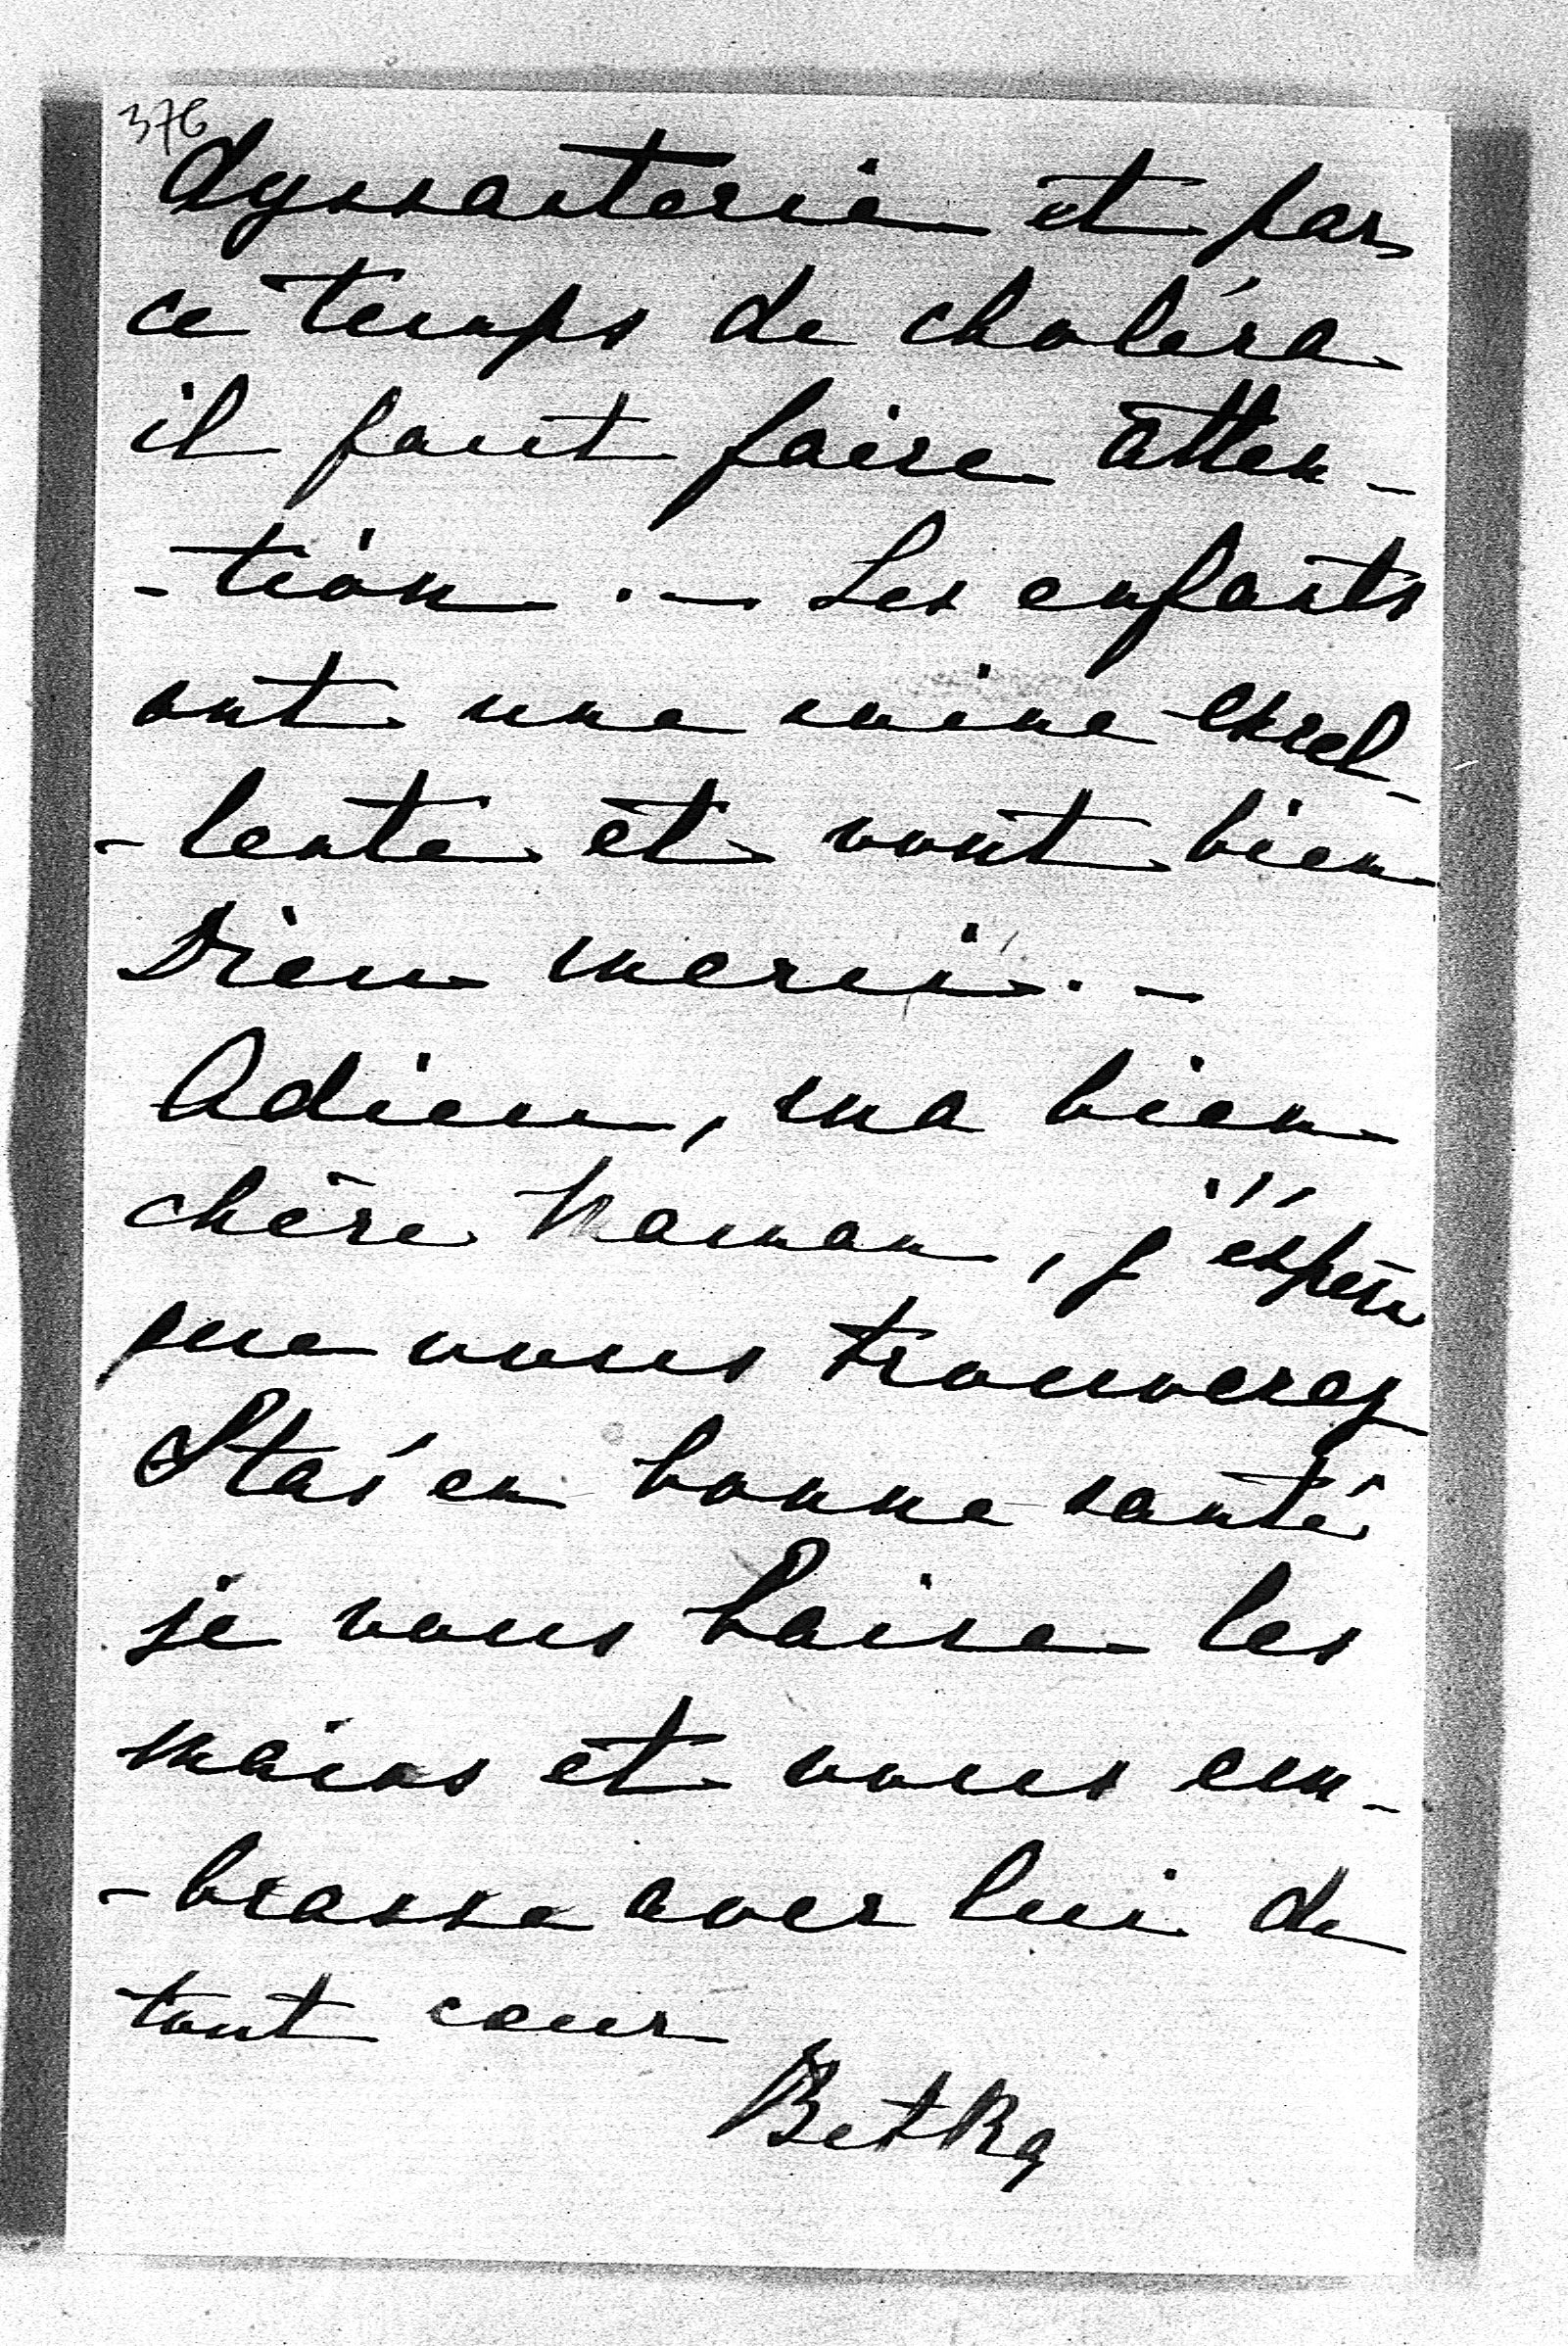 376
dyssanterie et par
ce temps de choléra
il faut faire atten-
-tion. — Les enfants
ont une mine excel-
-lente et vont bien
Dieu merci. —
Adieu, ma bien
chère Maman, j'espère
que vous trouverez
Staś en bonne santé
je vous baise les
mains et vous em-
-brasse avec lui de
tout cœur
Betka